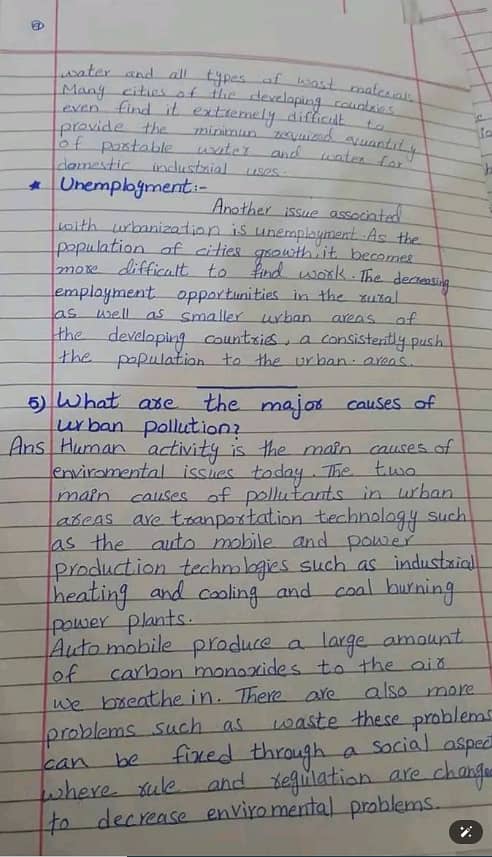 water and all types of wast materials.
Many cities of the developing countries
even find it extremely difficult to
provide the minimun required quantity
of portable water and water for
domestic industrial uses.
* Unemployment:-
Another issue associated
with urbanization is unemployment. As the
population of cities growth, it becomes
more difficult to find work. The decreasing
employment opportunities in the rural
as well as smaller urban areas of
the developing countries, a consistently push
the population to the urban. areas.
5) What are the major causes of
urban pollution?
Ans Human activity is the main causes of
enviromental issues today. The two
main causes of pollutants in urban
areas are tranportation technology such
as the auto mobile and power
production technologies such as industrial
heating and cooling and coal burning
power plants.
Automobile produce a large amount
of carbon monoxides to the air
we breathe in. There are also more
problems such as waste these problems
can be fixed through a social aspect
where rule and regulation are change
to decrease enviromental problems.